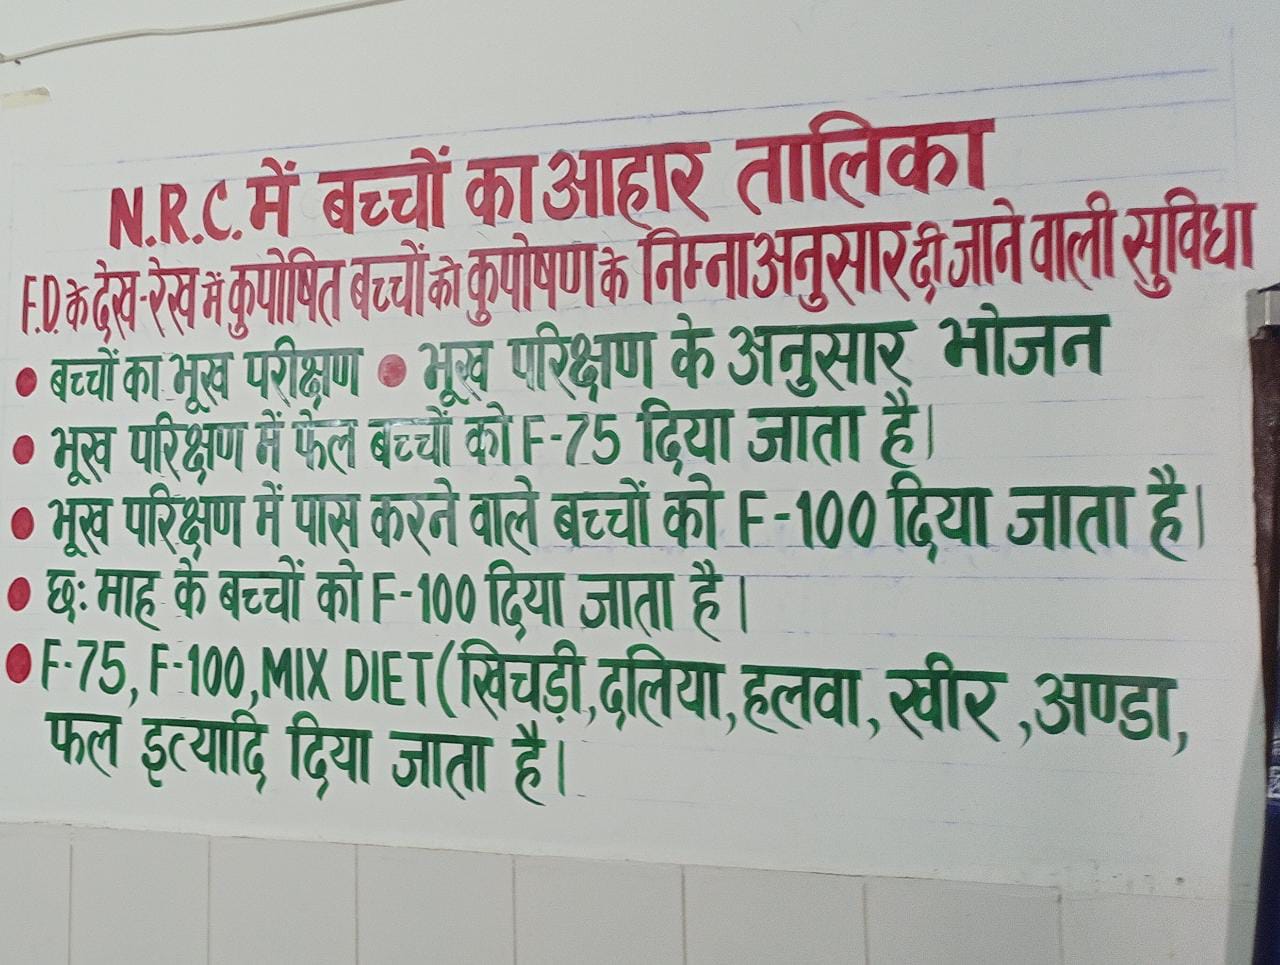 N.R.C. में बच्चों का आहार तालिका
F.D. के देख-रेख में कुपोषित बच्चों को कुपोषण के निम्नाअनुसार दी जाने वाली सुविधा
• बच्चों का भूख परीक्षण • भूख परिक्षण के अनुसार भोजन
• भूख परिक्षण में फेल बच्चों को F-75 दिया जाता है।
• भूख परिक्षण में पास करने वाले बच्चों को F-100 दिया जाता है।
• छः माह के बच्चों को F-100 दिया जाता है।
• F-75, F-100, MIX DIET (खिचड़ी, दलिया, हलवा, खीर, अण्डा,
फल इत्यादि दिया जाता है।